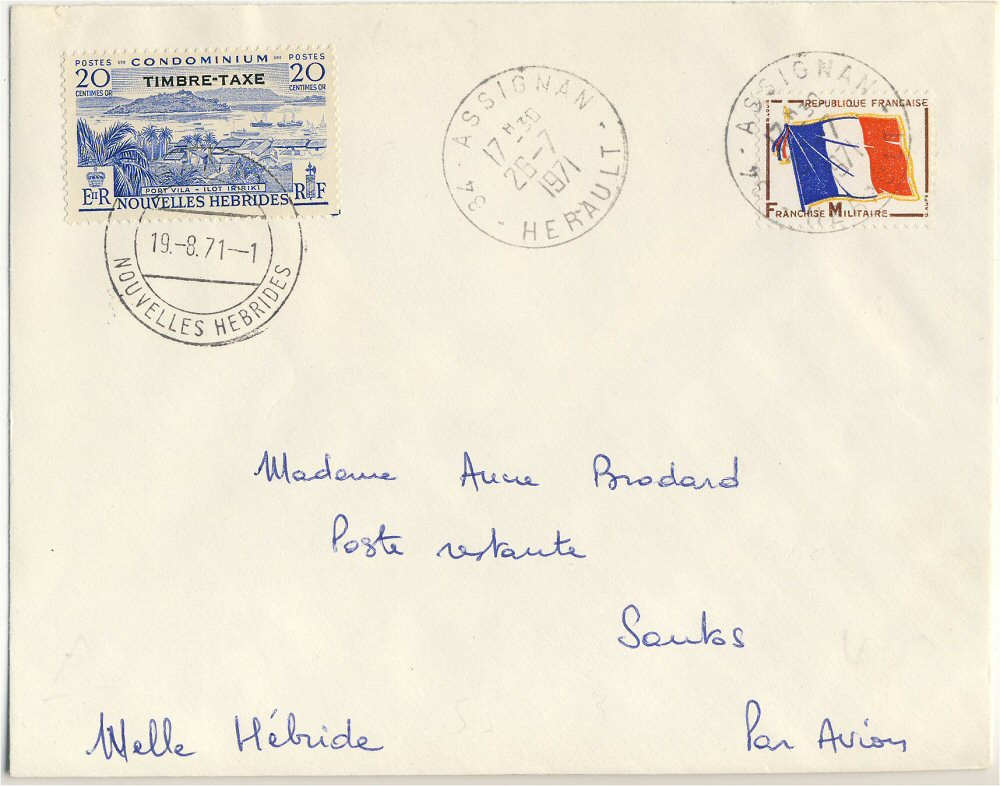 POSTES CONDOMINIUM POSTES
20 TIMBRE-TAXE 20
CENTIMES OR CENTIMES OR
PORT VILA - ILOT IRIRIKI
EIIR NOUVELLES HEBRIDES RF
19.-8.71--1
NOUVELLES HEBRIDES
34 - ASSIGNAN -
17 H -30
26-7
1971
- HERAULT
34 - ASSIGNAN
1971
REPUBLIQUE FRANÇAISE
FRANCHISE MILITAIRE
Madame Anne Brodard
Poste restante
Santos
Nelle Hébride
Par Avion